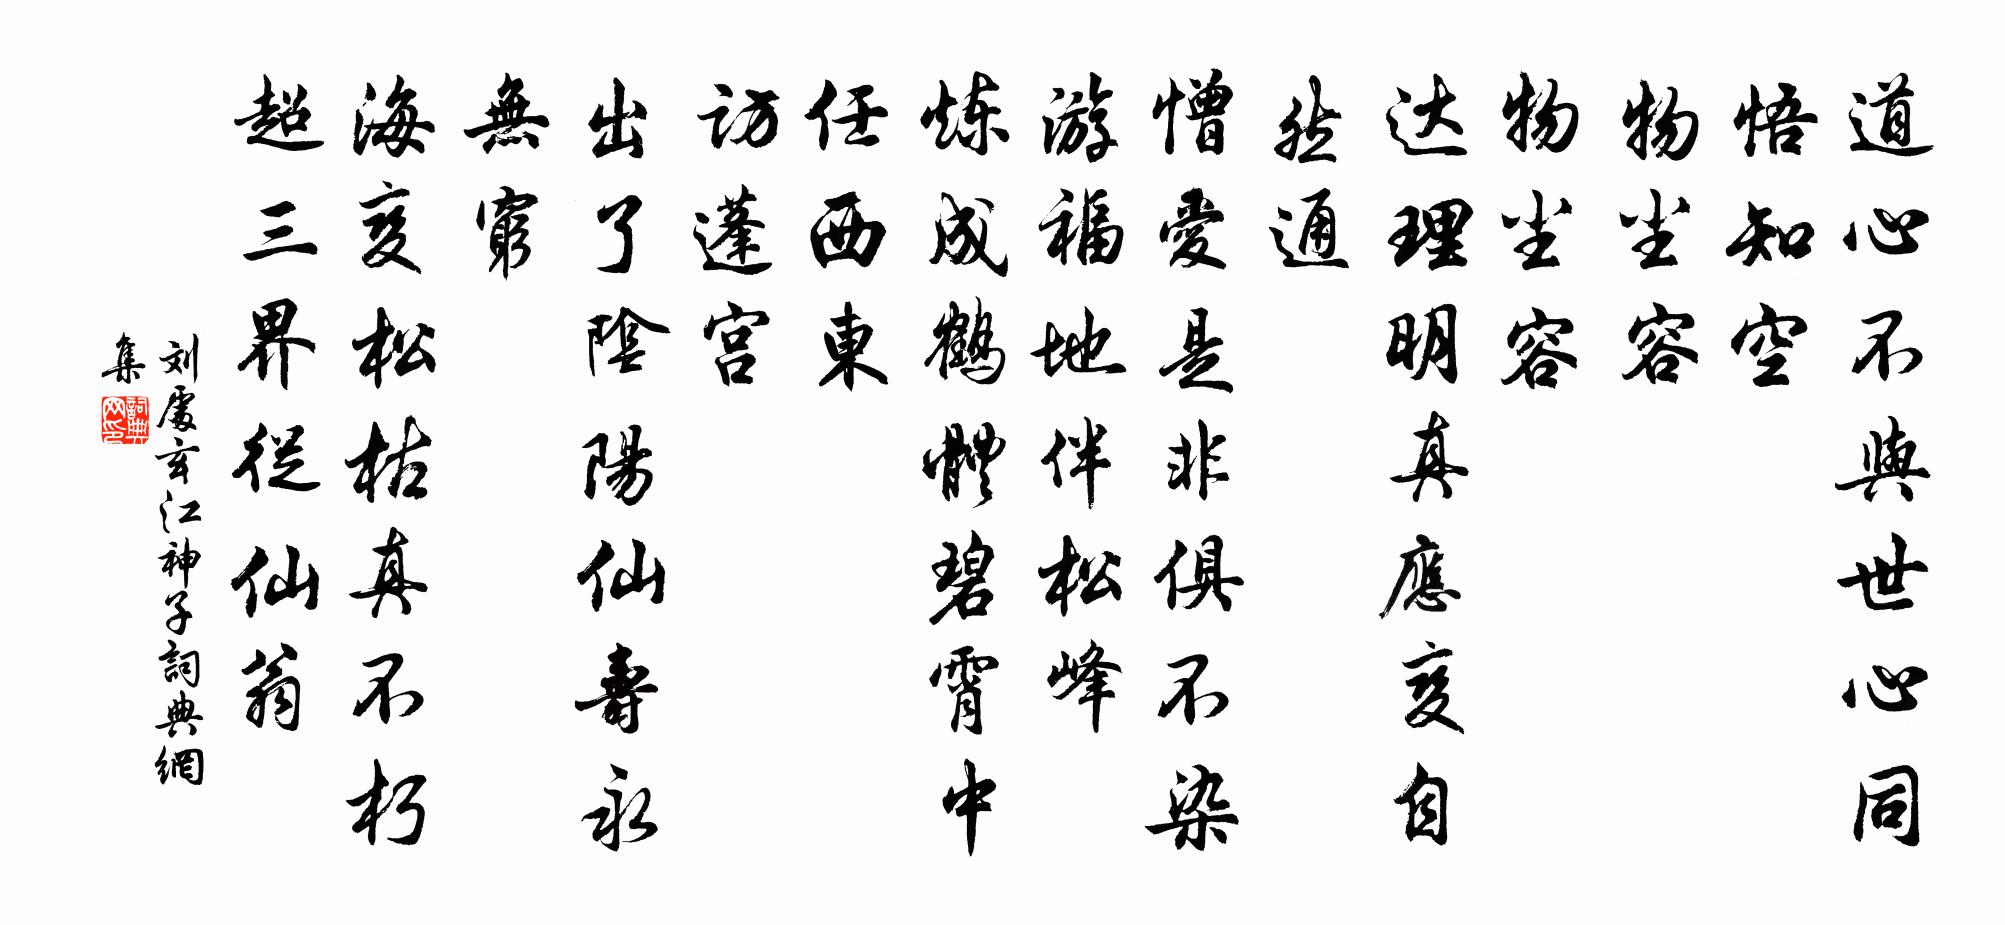 道心不與世心同
悟知空
物尘容
物尘容
达理明真應变自
然通
憎愛是非俱不染
游福地伴松峰
炼成鶴體碧霄中
任西東
访蓬宫
出了陰陽仙壽永
無窮
海变松枯真不朽
超三界從仙翁
刘處玄江神子詞典網
集
詞典網印